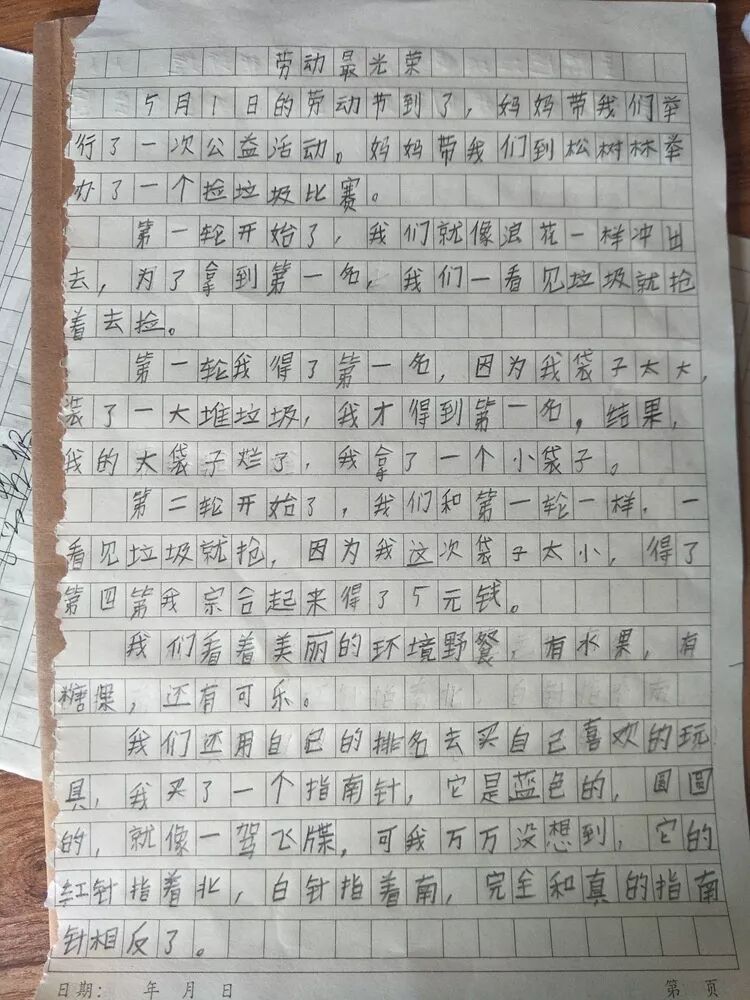 劳动最光荣
5月1日的劳动节到了，妈妈带我们举
行了一次公益活动。妈妈带我们到松树林举
办了一个捡垃圾比赛。
第一轮开始了，我们就像浪花一样冲出
去，为了拿到第一名，我们一看见垃圾就抢
着去捡。
第一轮我得了第一名，因为我袋子太大，
装了一大堆垃圾，我才得到第一名。结果，
我的大袋子烂了，我拿了一个小袋子。
第二轮开始了，我们和第一轮一样，一
看见垃圾就抢，因为我这次袋子太小，得了
第四第我宗合起来得了5元钱。
我们看着美丽的环境野餐，有水果，有
糖果，还有可乐。
我们还用自己的排名去买自己喜欢的玩
具，我买了一个指南针，它是蓝色的，圆圆
的，就像一驾飞牒，可我万万没想到，它的
红针指着北，白针指着南，完全和真的指南
针相反了。
日期： 年 月 日 第 页